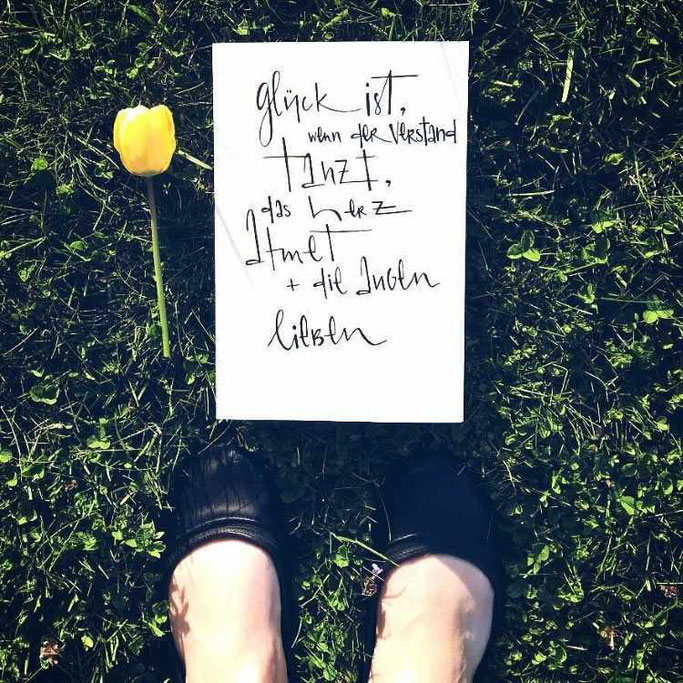 glück ist,
wenn der Verstand
tanzt,
das Herz
atmet
+ die Augen
lieben